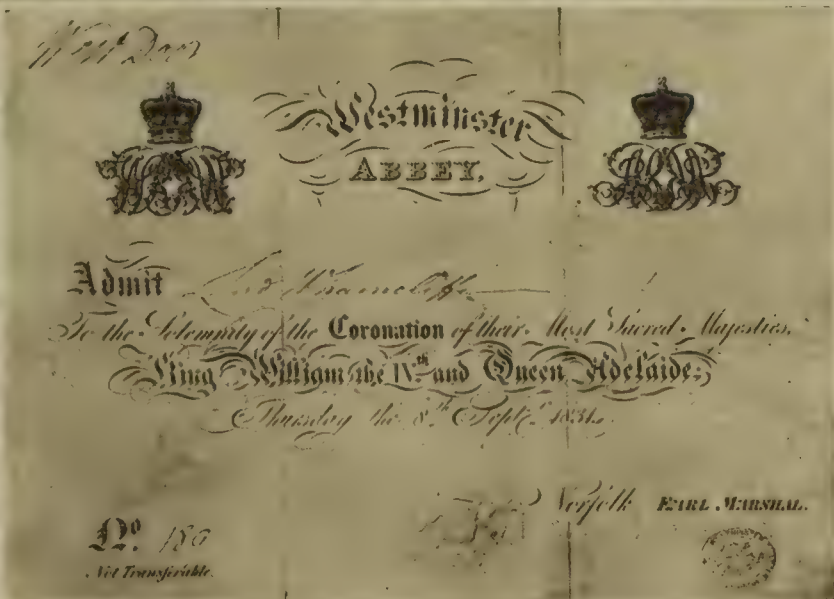 West Door
Westminster
ABBEY.
Admit Lord Wharncliffe
To the Solemnity of the Coronation of their Most Sacred Majesties,
King William the IVth and Queen Adelaide;
Thursday the 8th Septr. 1831.
Norfolk EARL MARSHAL.
No. 180
Not Transferable.